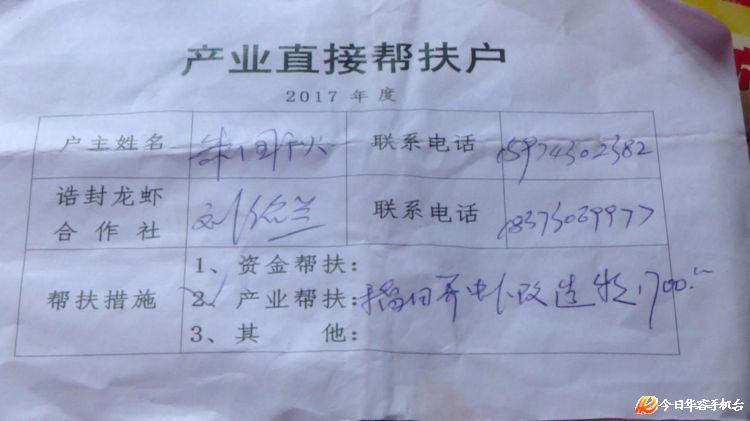 产业直接帮扶户
2017 年 度
户主姓名 联系电话 15974302382
诰封龙虾
合作社 联系电话 18373029977
1、资金帮扶：
帮扶措施 2、产业帮扶：稻田养虾改造 1700.
3、其 他：
今日华容手机台